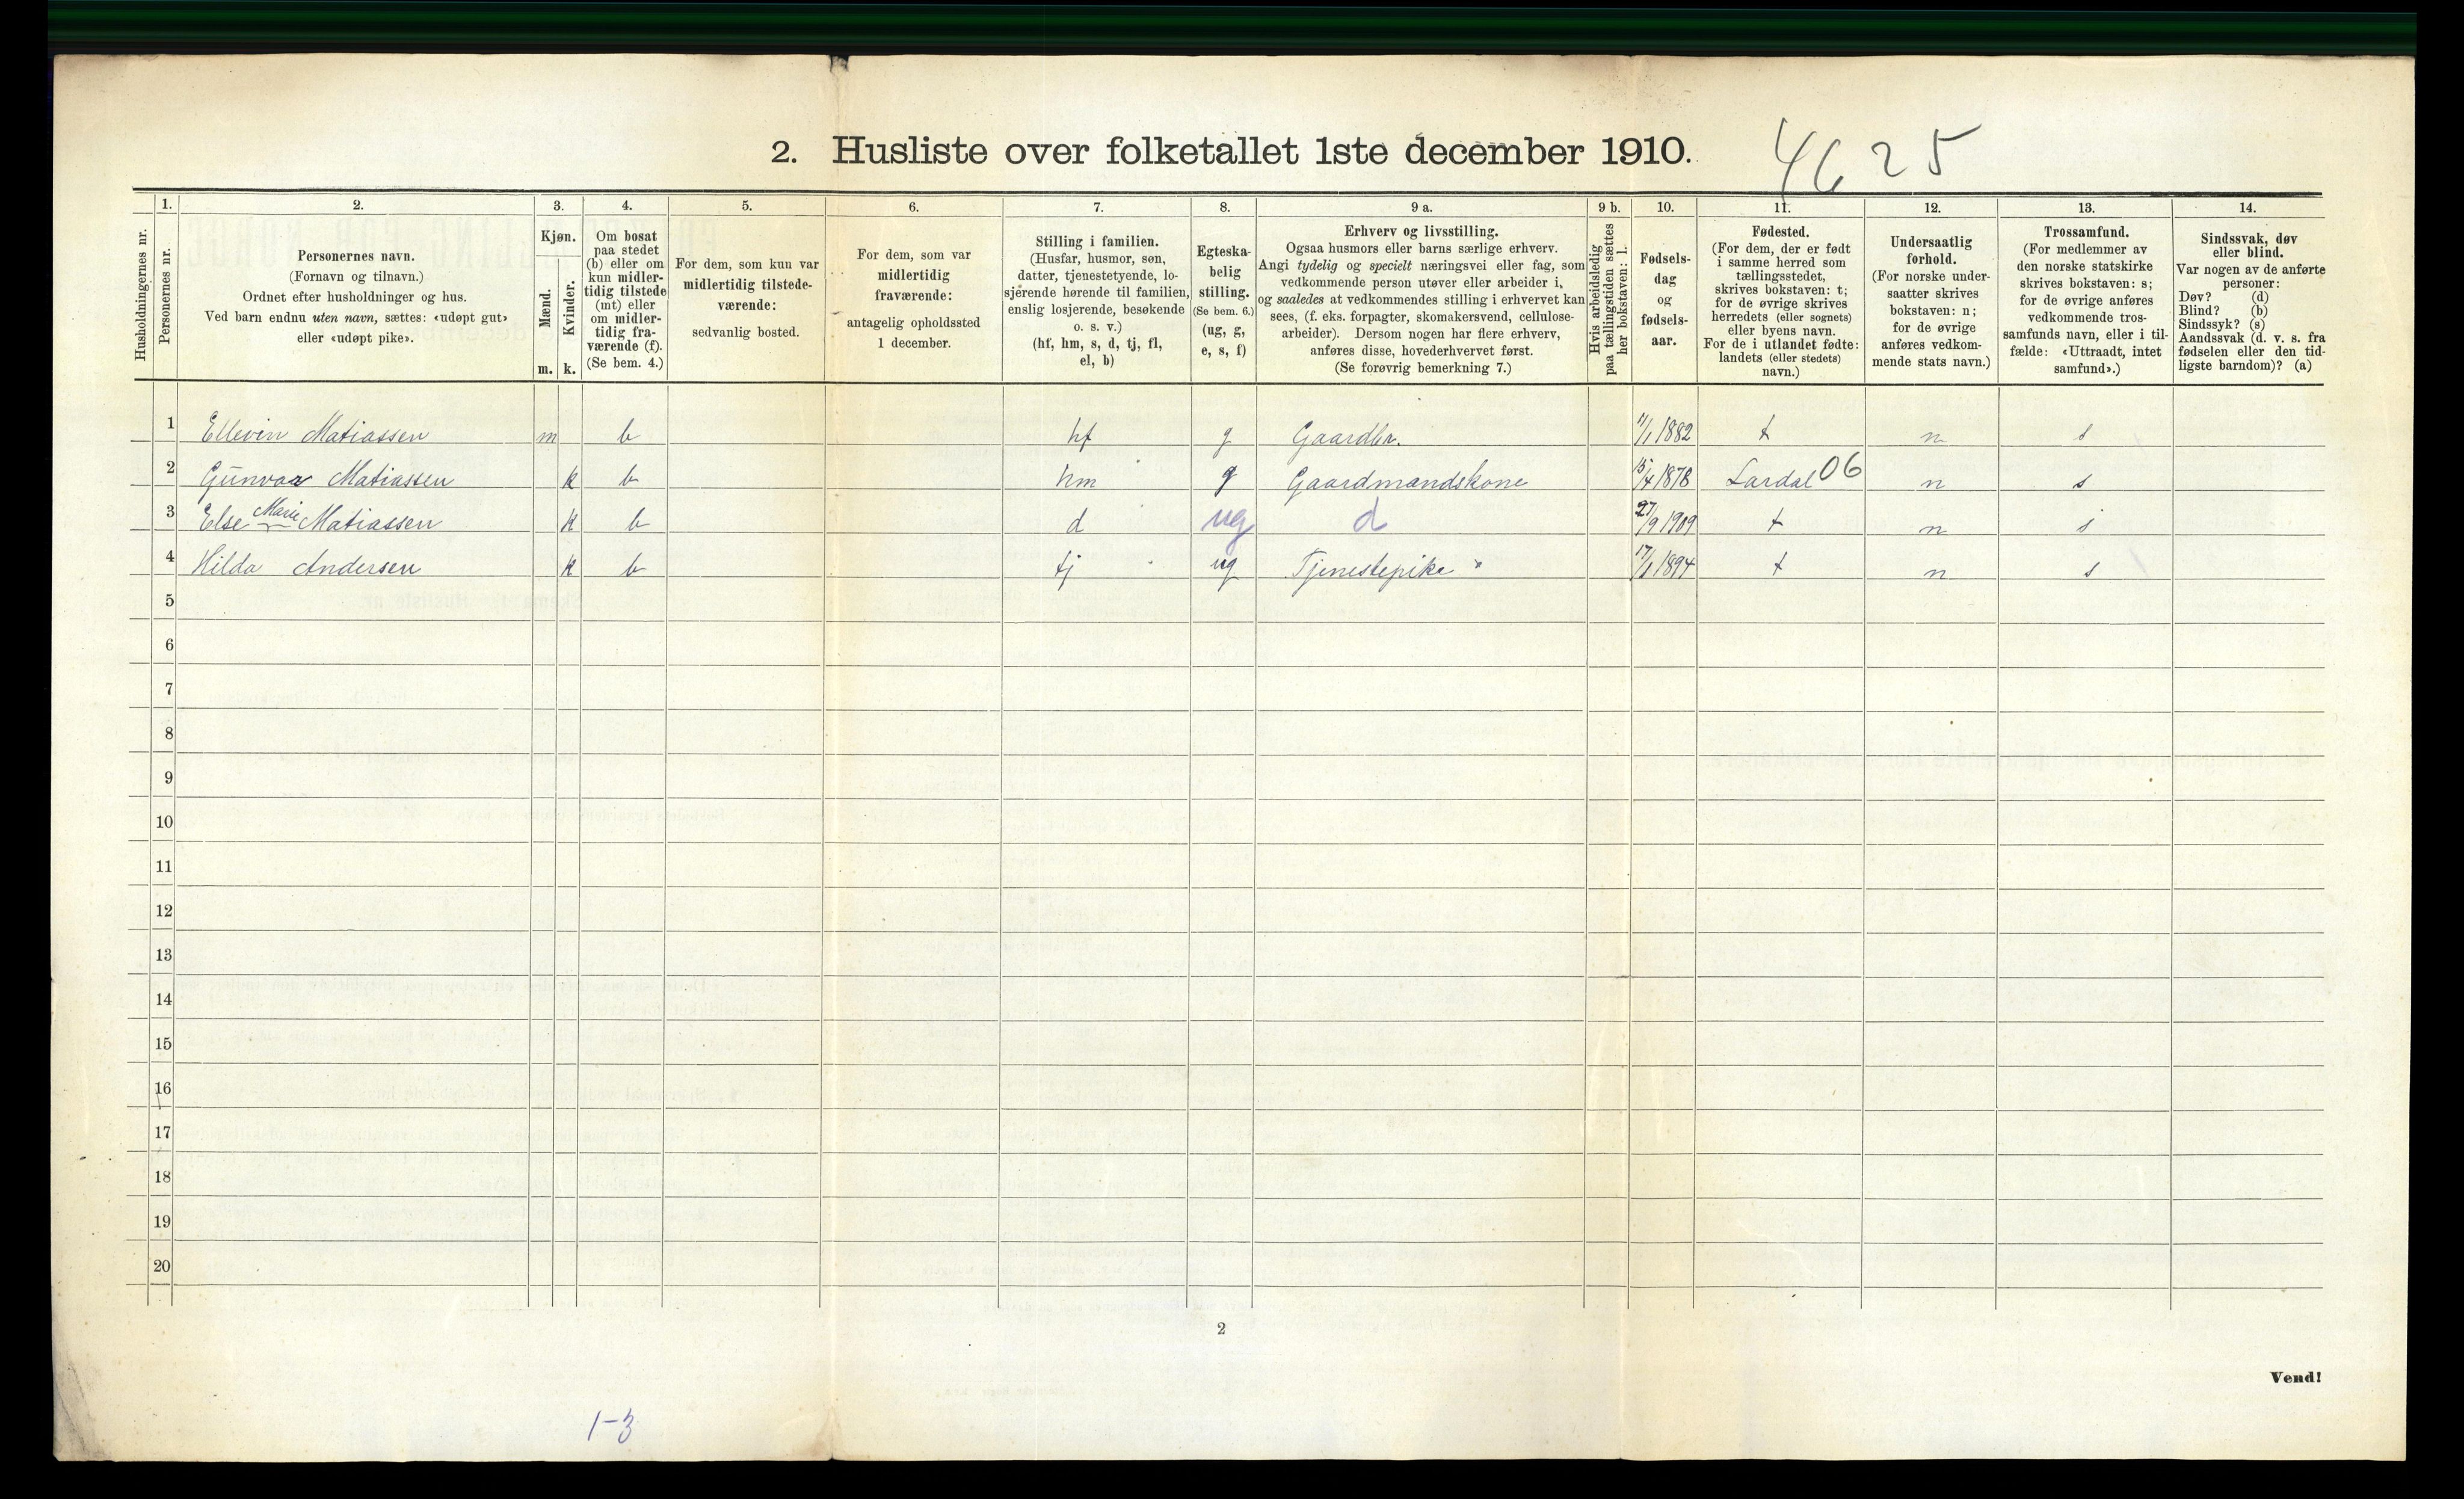 2. Husliste over folketallet 1ste december 1910.
4625
Husholdningernes nr.
1.
Personernes nr.
2.
Personernes navn.
(Fornavn og tilnavn.)
Ordnet efter husholdninger og hus.
Ved barn endnu uten navn, sættes: «udøpt gut»
eller «udøpt pike».
3.
Kjøn.
Mænd.
Kvinder.
m. k.
4.
Om bosat
paa stedet
(b) eller om
kun midler-
tidig tilstede
(mt) eller
om midler-
tidig fra-
værende (f).
(Se bem. 4.)
5.
For dem, som kun var
midlertidig tilstede-
værende:
sedvanlig bosted.
6.
For dem, som var
midlertidig
fraværende:
antagelig opholdssted
1 december.
7.
Stilling i familien.
(Husfar, husmor, søn,
datter, tjenestetyende, lo-
sjerende hørende til familien,
enslig losjerende, besøkende
o. s. v.)
(hf, hm, s, d, tj, fl,
el, b)
8.
Egteska-
belig
stilling.
(Se bem. 6.)
(ug, g,
e, s, f)
9 a.
Erhverv og livsstilling.
Ogsaa husmors eller barns særlige erhverv.
Angi tydelig og specielt næringsvei eller fag, som
vedkommende person utøver eller arbeider i,
og saaledes at vedkommendes stilling i erhvervet kan
sees, (f. eks. forpagter, skomakersvend, cellulose-
arbeider). Dersom nogen har flere erhverv,
anføres disse, hovederhvervet først.
(Se forøvrig bemerkning 7.)
9 b.
Hvis arbeidsledig
paa tællingstiden sættes
her bokstaven: l.
10.
Fødsels-
dag
og
fødsels-
aar.
11.
Fødested.
(For dem, der er født
i samme herred som
tællingsstedet,
skrives bokstaven: t;
for de øvrige skrives
herredets (eller sognets)
eller byens navn.
For de i utlandet fødte:
landets (eller stedets)
navn.)
12.
Undersaatlig
forhold.
(For norske under-
saatter skrives
bokstaven: n;
for de øvrige
anføres vedkom-
mende stats navn.)
13.
Trossamfund.
(For medlemmer av
den norske statskirke
skrives bokstaven: s;
for de øvrige anføres
vedkommende tros-
samfunds navn, eller i til-
fælde: «Uttraadt, intet
samfund».)
14.
Sindssvak, døv
eller blind.
Var nogen av de anførte
personer:
Døv? (d)
Blind? (b)
Sindssyk? (s)
Aandssvak (d. v. s. fra
fødselen eller den tid-
ligste barndom)? (a)
1 Ellevin Matiassen m b hf g Gaardbr. 11/1 1882 t n s
2 Gunvor Matiassen k b hm g Gaardmandskone 15/4 1878 Lardal 06 n s
3 Else Marie Matiassen k b d ug d 27/9 1909 t n s
4 Hilda Andersen k b tj ug Tjenestepike 17/1 1894 t n s
5
6
7
8
9
10
11
12
13
14
15
16
17
18
19
20
2
Vend!
1-3